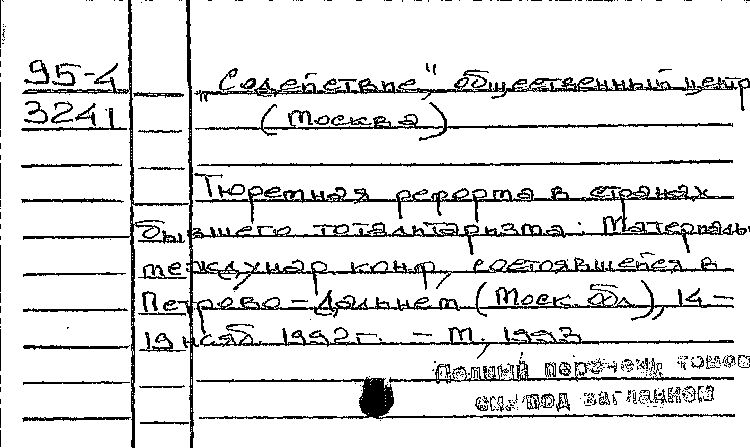 95-4 „Содействие", общественный центр
3241 (Москва)
Тюремная реформа в странах
бывшего тоталитаризма: Материалы
междунар. конф., состоявшейся в
Петрово-Дальнем (Моск. обл.), 14-
19 нояб. 1992 г. - М., 1993
Полный перечень томов
см. под заглавием